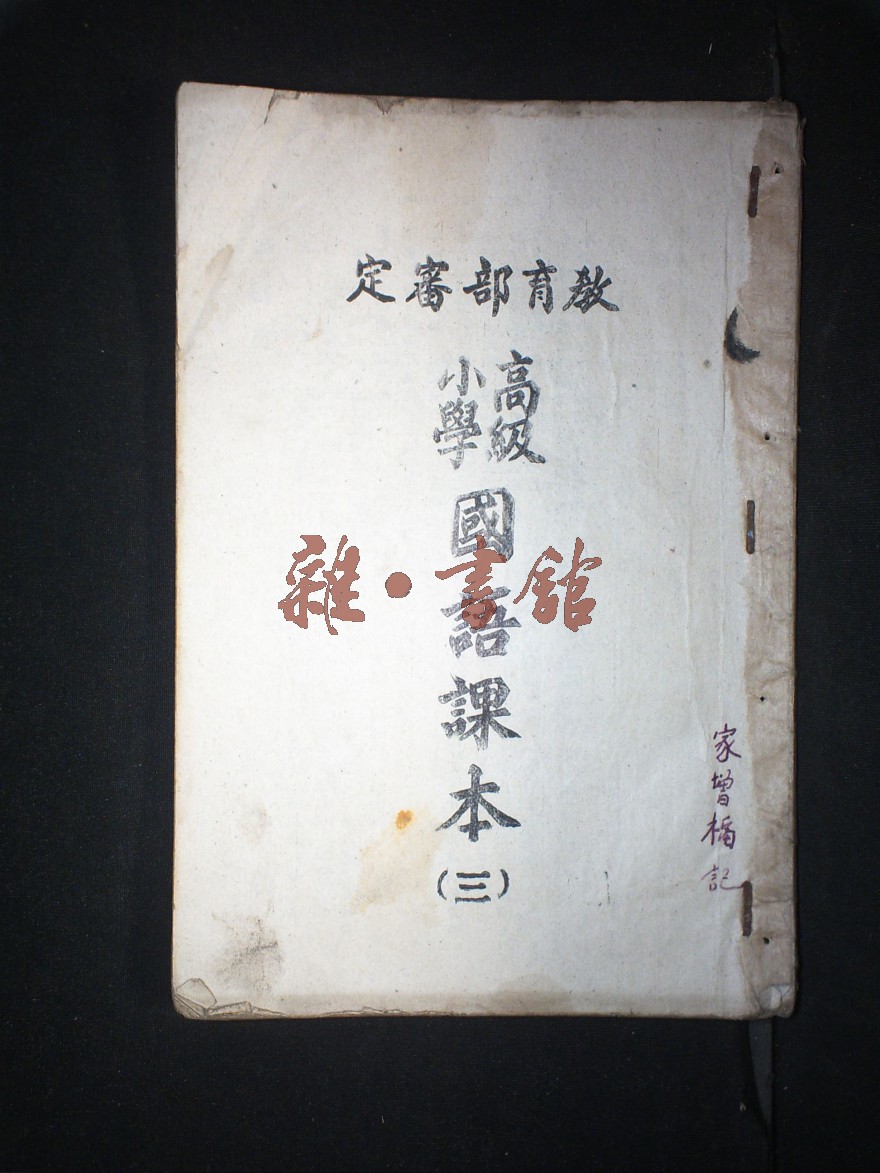 教育部審定
高級
小學
國語課本
(三)
雜·書館
家增楅記